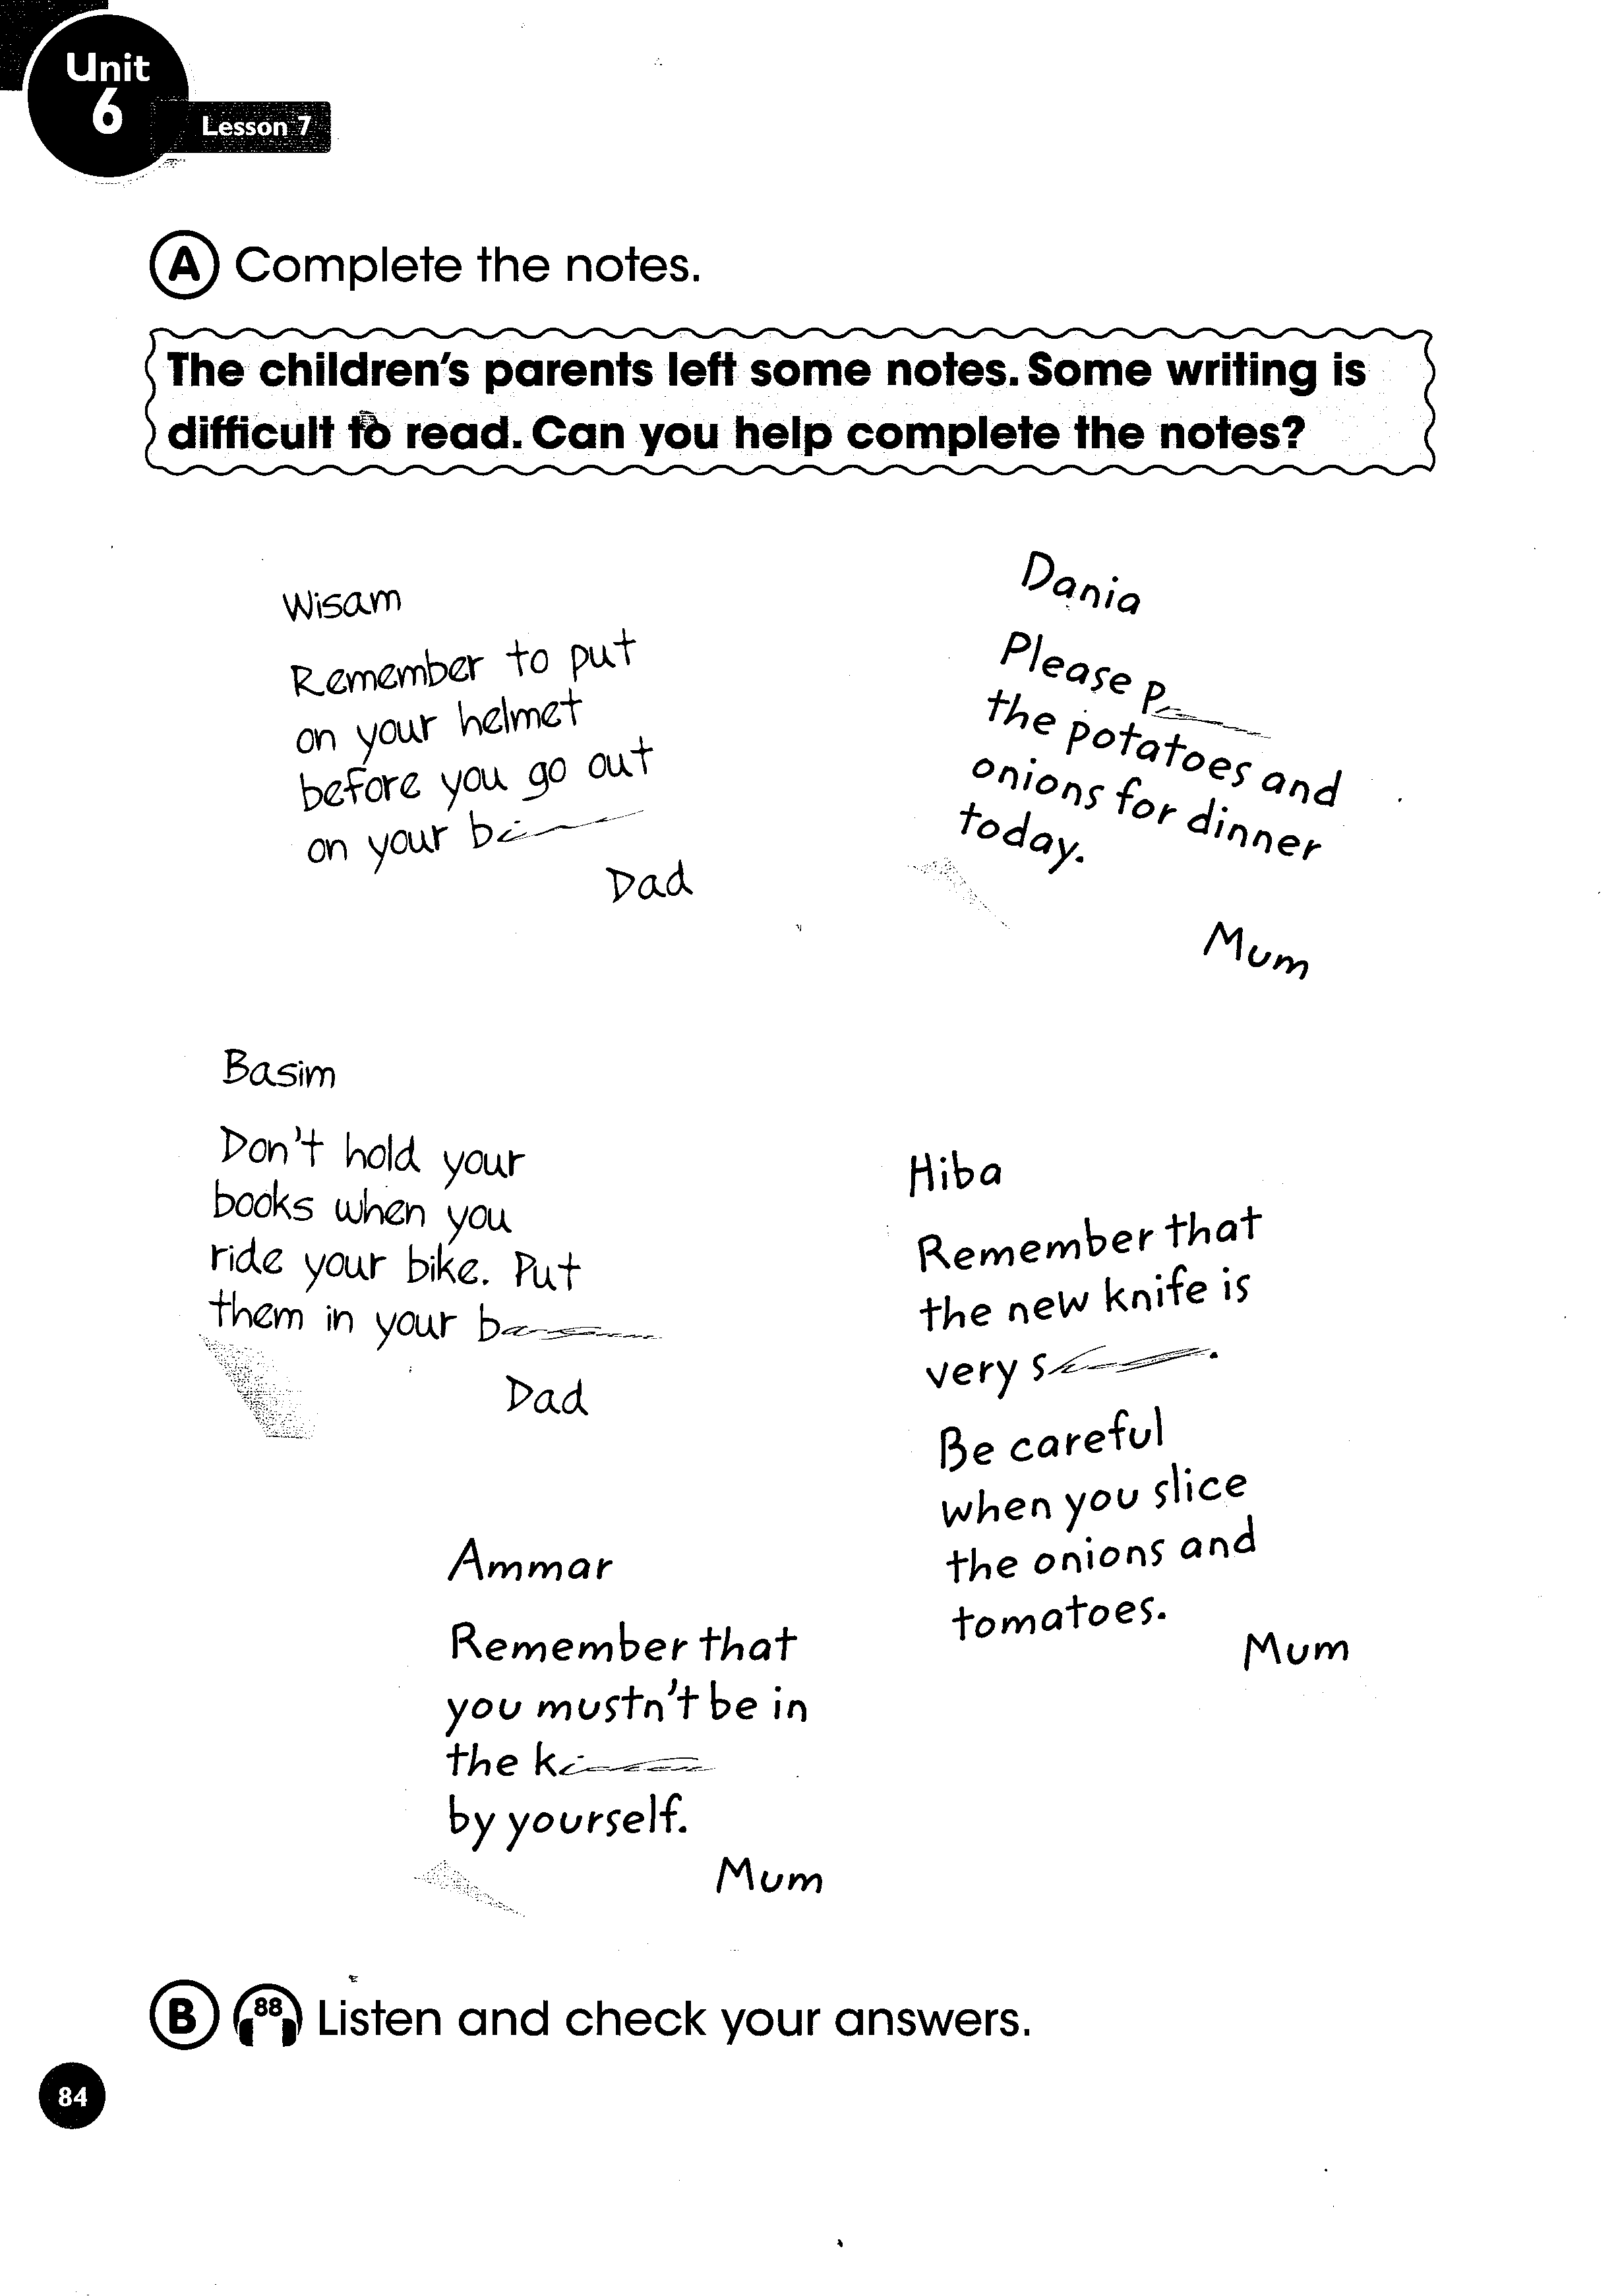 Unit
6
Lesson 7
A Complete the notes.
The children's parents left some notes. Some writing is
difficult to read. Can you help complete the notes?
Wisam
Remember to put
on your helmet
before you go out
on your
Dad
Dania
Please
the potatoes and
onions for dinner
today.
Mum
Basim
Don't hold your
books when you
ride your bike. Put
them in your
Dad
Hiba
Remember that
the new knife is
very
Be careful
when you slice
the onions and
tomatoes.
Mum
Ammar
Remember that
you mustn't be in
the
by yourself.
Mum
B 88 Listen and check your answers.
84